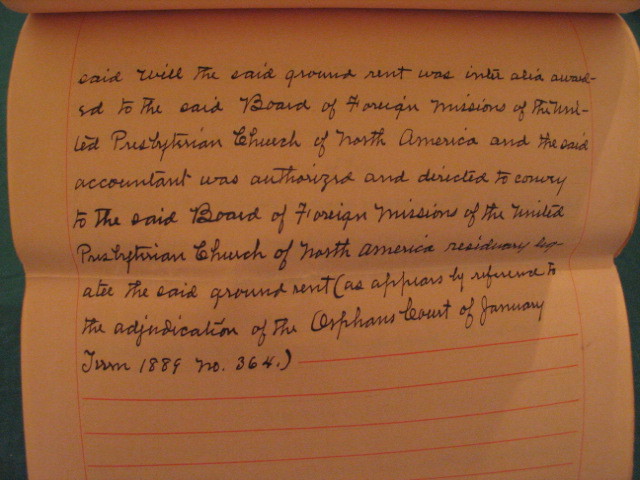 said Will the said ground rent was inter alia award-
ed to the said Board of Foreign Missions of the Uni-
ted Presbyterian Church of North America and the said
accountant was authorized and directed to convey
to the said Board of Foreign Missions of the United
Presbyterian Church of North America residuary leg-
atee the said ground rent (as appears by reference to
the adjudication of the Orphans Court of January
Term 1889 No. 364.)